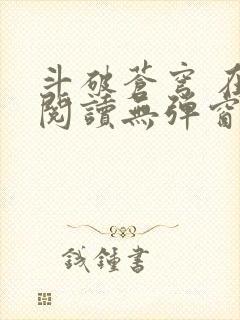 斗破蒼穹 在
閱讀無彈窗
錢鍾書